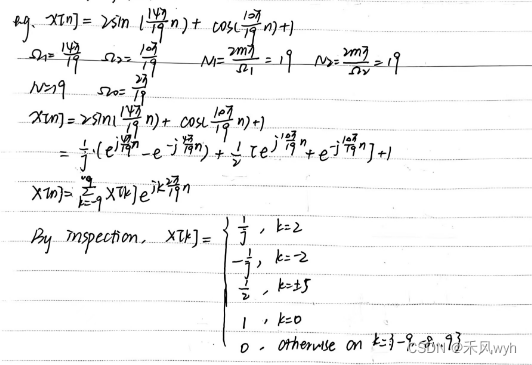 eg. X[n] = 2sin(14π/19 n) + cos(10π/19 n) + 1
Ω1 = 14π/19 Ω2 = 10π/19 N1 = 2mπ/Ω1 = 19 N2 = 2mπ/Ω2 = 19
N=19 Ω0 = 2π/19
X[n] = 2sin(14π/19 n) + cos(10π/19 n) + 1
= 1/j (e^{j 4π/19 n} - e^{-j 4π/19 n}) + 1/2 [e^{j 10π/19 n} + e^{-j 10π/19 n}] + 1
X[n] = Σ_{k=-9}^{9} X[k] e^{jk 2π/19 n}
By inspection, X[k] = { 1/j , k=2
-1/j , k=-2
1/2 , k=±5
1 , k=0
0 , otherwise on k={-9, -8, 9}
CSDN @禾风wyh